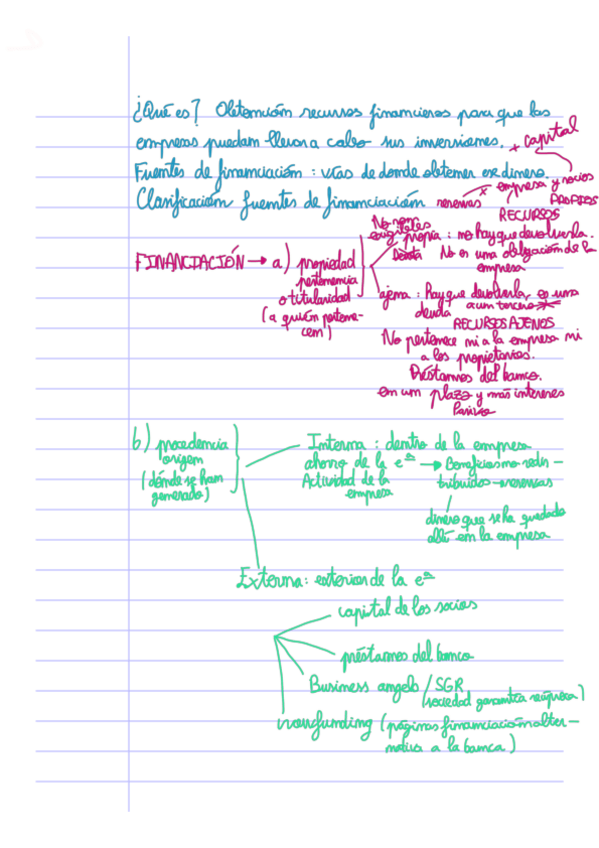 ¿Qué es? Obtención recursos financieros para que las
empresas puedan llevar a cabo sus inversiones.
+ capital
Fuentes de financiación: vías de donde obtener ese dinero.
empresa y socios
Clasificación fuentes de financiación
reservas
PROPIOS
RECURSOS
FINANCIACIÓN → a) propiedad
pertenencia
o titularidad
(a quién pertene-
cen)
No son
exigibles
propia: no hay que devolverla.
Deuda
No es una obligación de la
empresa
ajena: hay que devolverla, es una
deuda
a un tercero
RECURSOS AJENOS
No pertenece ni a la empresa ni
a los propietarios.
Préstamos del banco.
en un plazo y más intereses
Pasivo
b) procedencia
origen
(dónde se han
generado)
Interna: dentro de la empresa
ahorro de la eª → Beneficios no redis-
tribuidos-reservas
Actividad de la
empresa
dinero que se ha quedado
allí en la empresa
Externa: exterior de la eª
capital de los socios
préstamos del banco
Business angels / SGR
(sociedad garantía recíproca)
crowfunding (páginas financiación alter-
nativa a la banca)